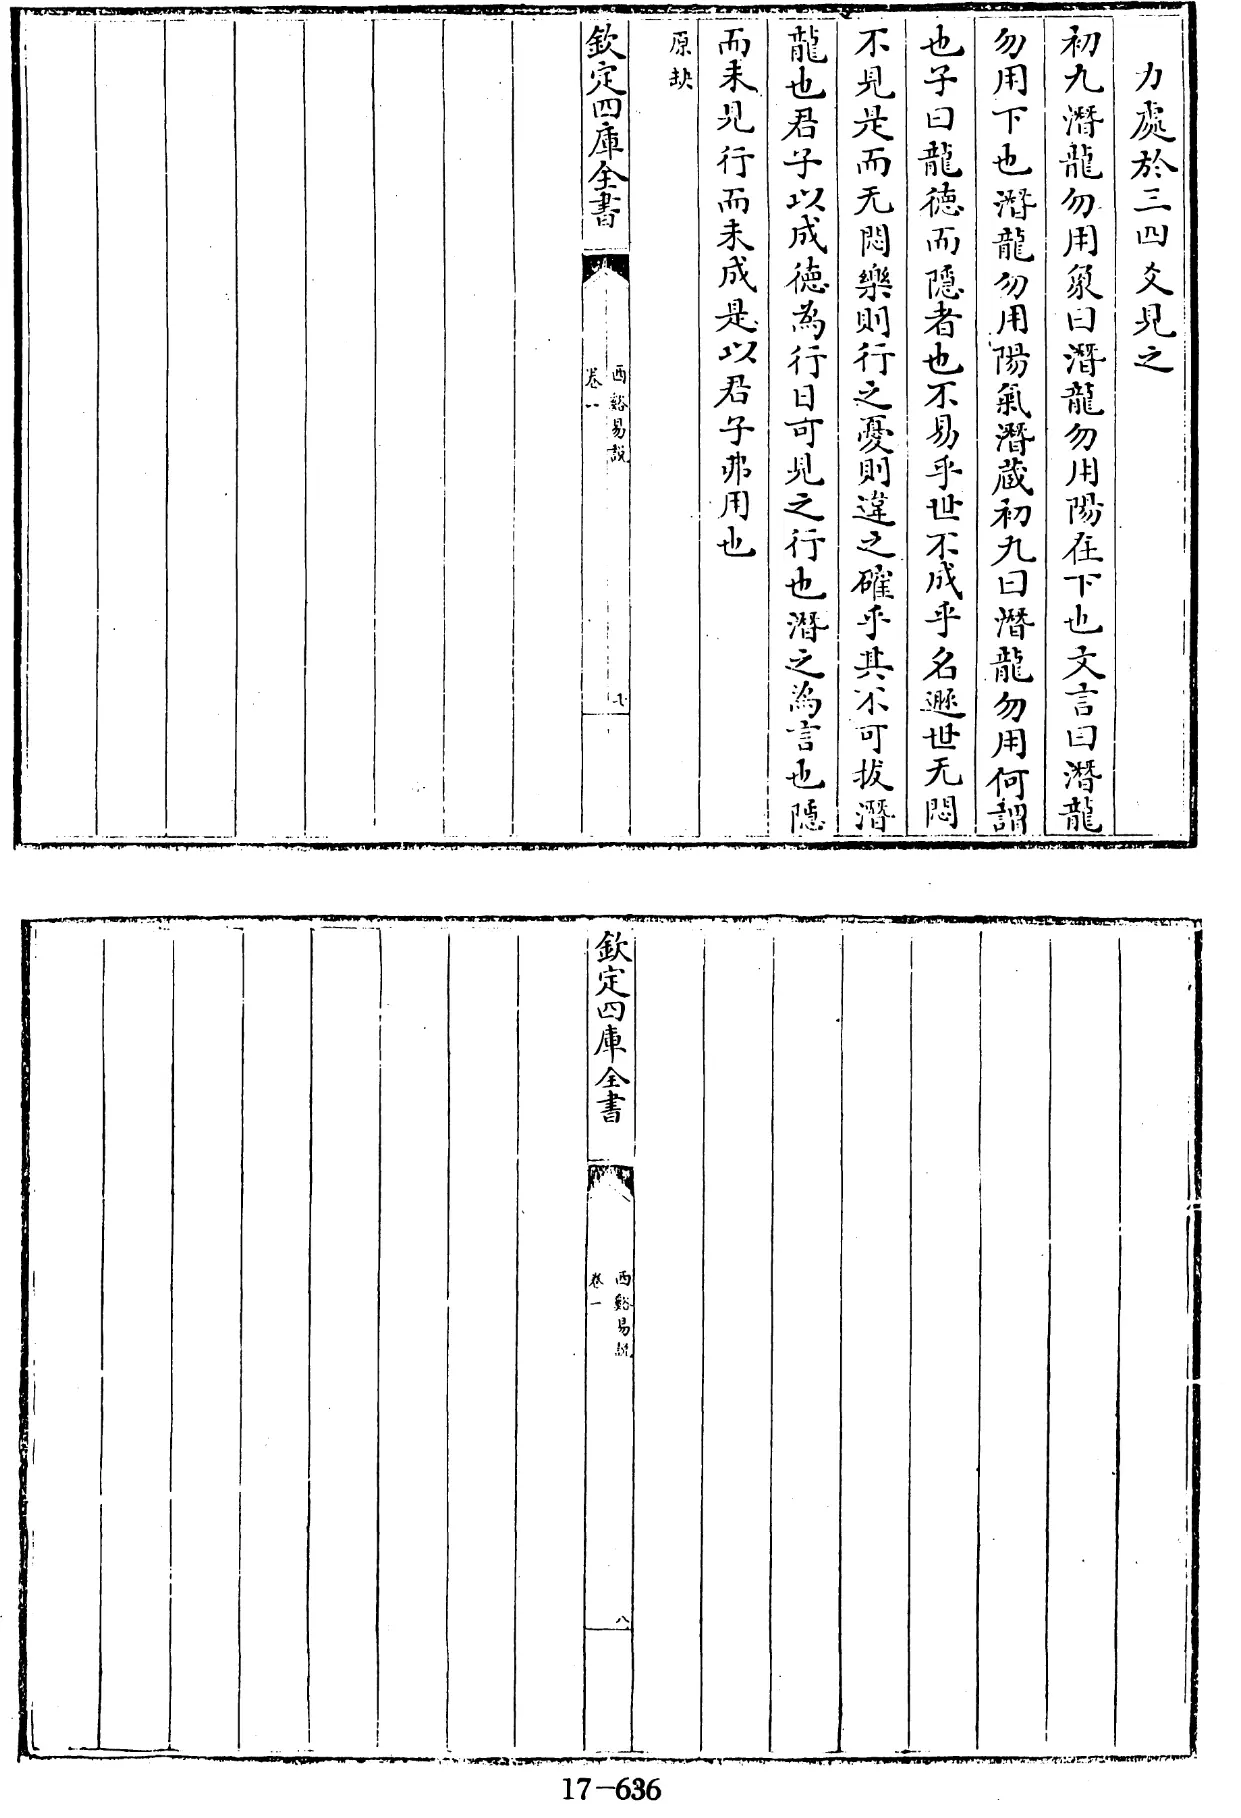 力處於三四爻見之
初九潛龍勿用象曰潛龍勿用陽在下也文言曰潛龍
勿用下也潛龍勿用陽氣潛藏初九曰潛龍勿用何謂
也子曰龍德而隱者也不易乎世不成乎名遯世无悶
不見是而无悶樂則行之憂則違之確乎其不可拔潛
龍也君子以成德為行日可見之行也潛之為言也隱
而未見行而未成是以君子弗用也
原缺
欽定四庫全書
西谿易說
卷一
七
欽定四庫全書
西谿易說
卷一
八
17-636